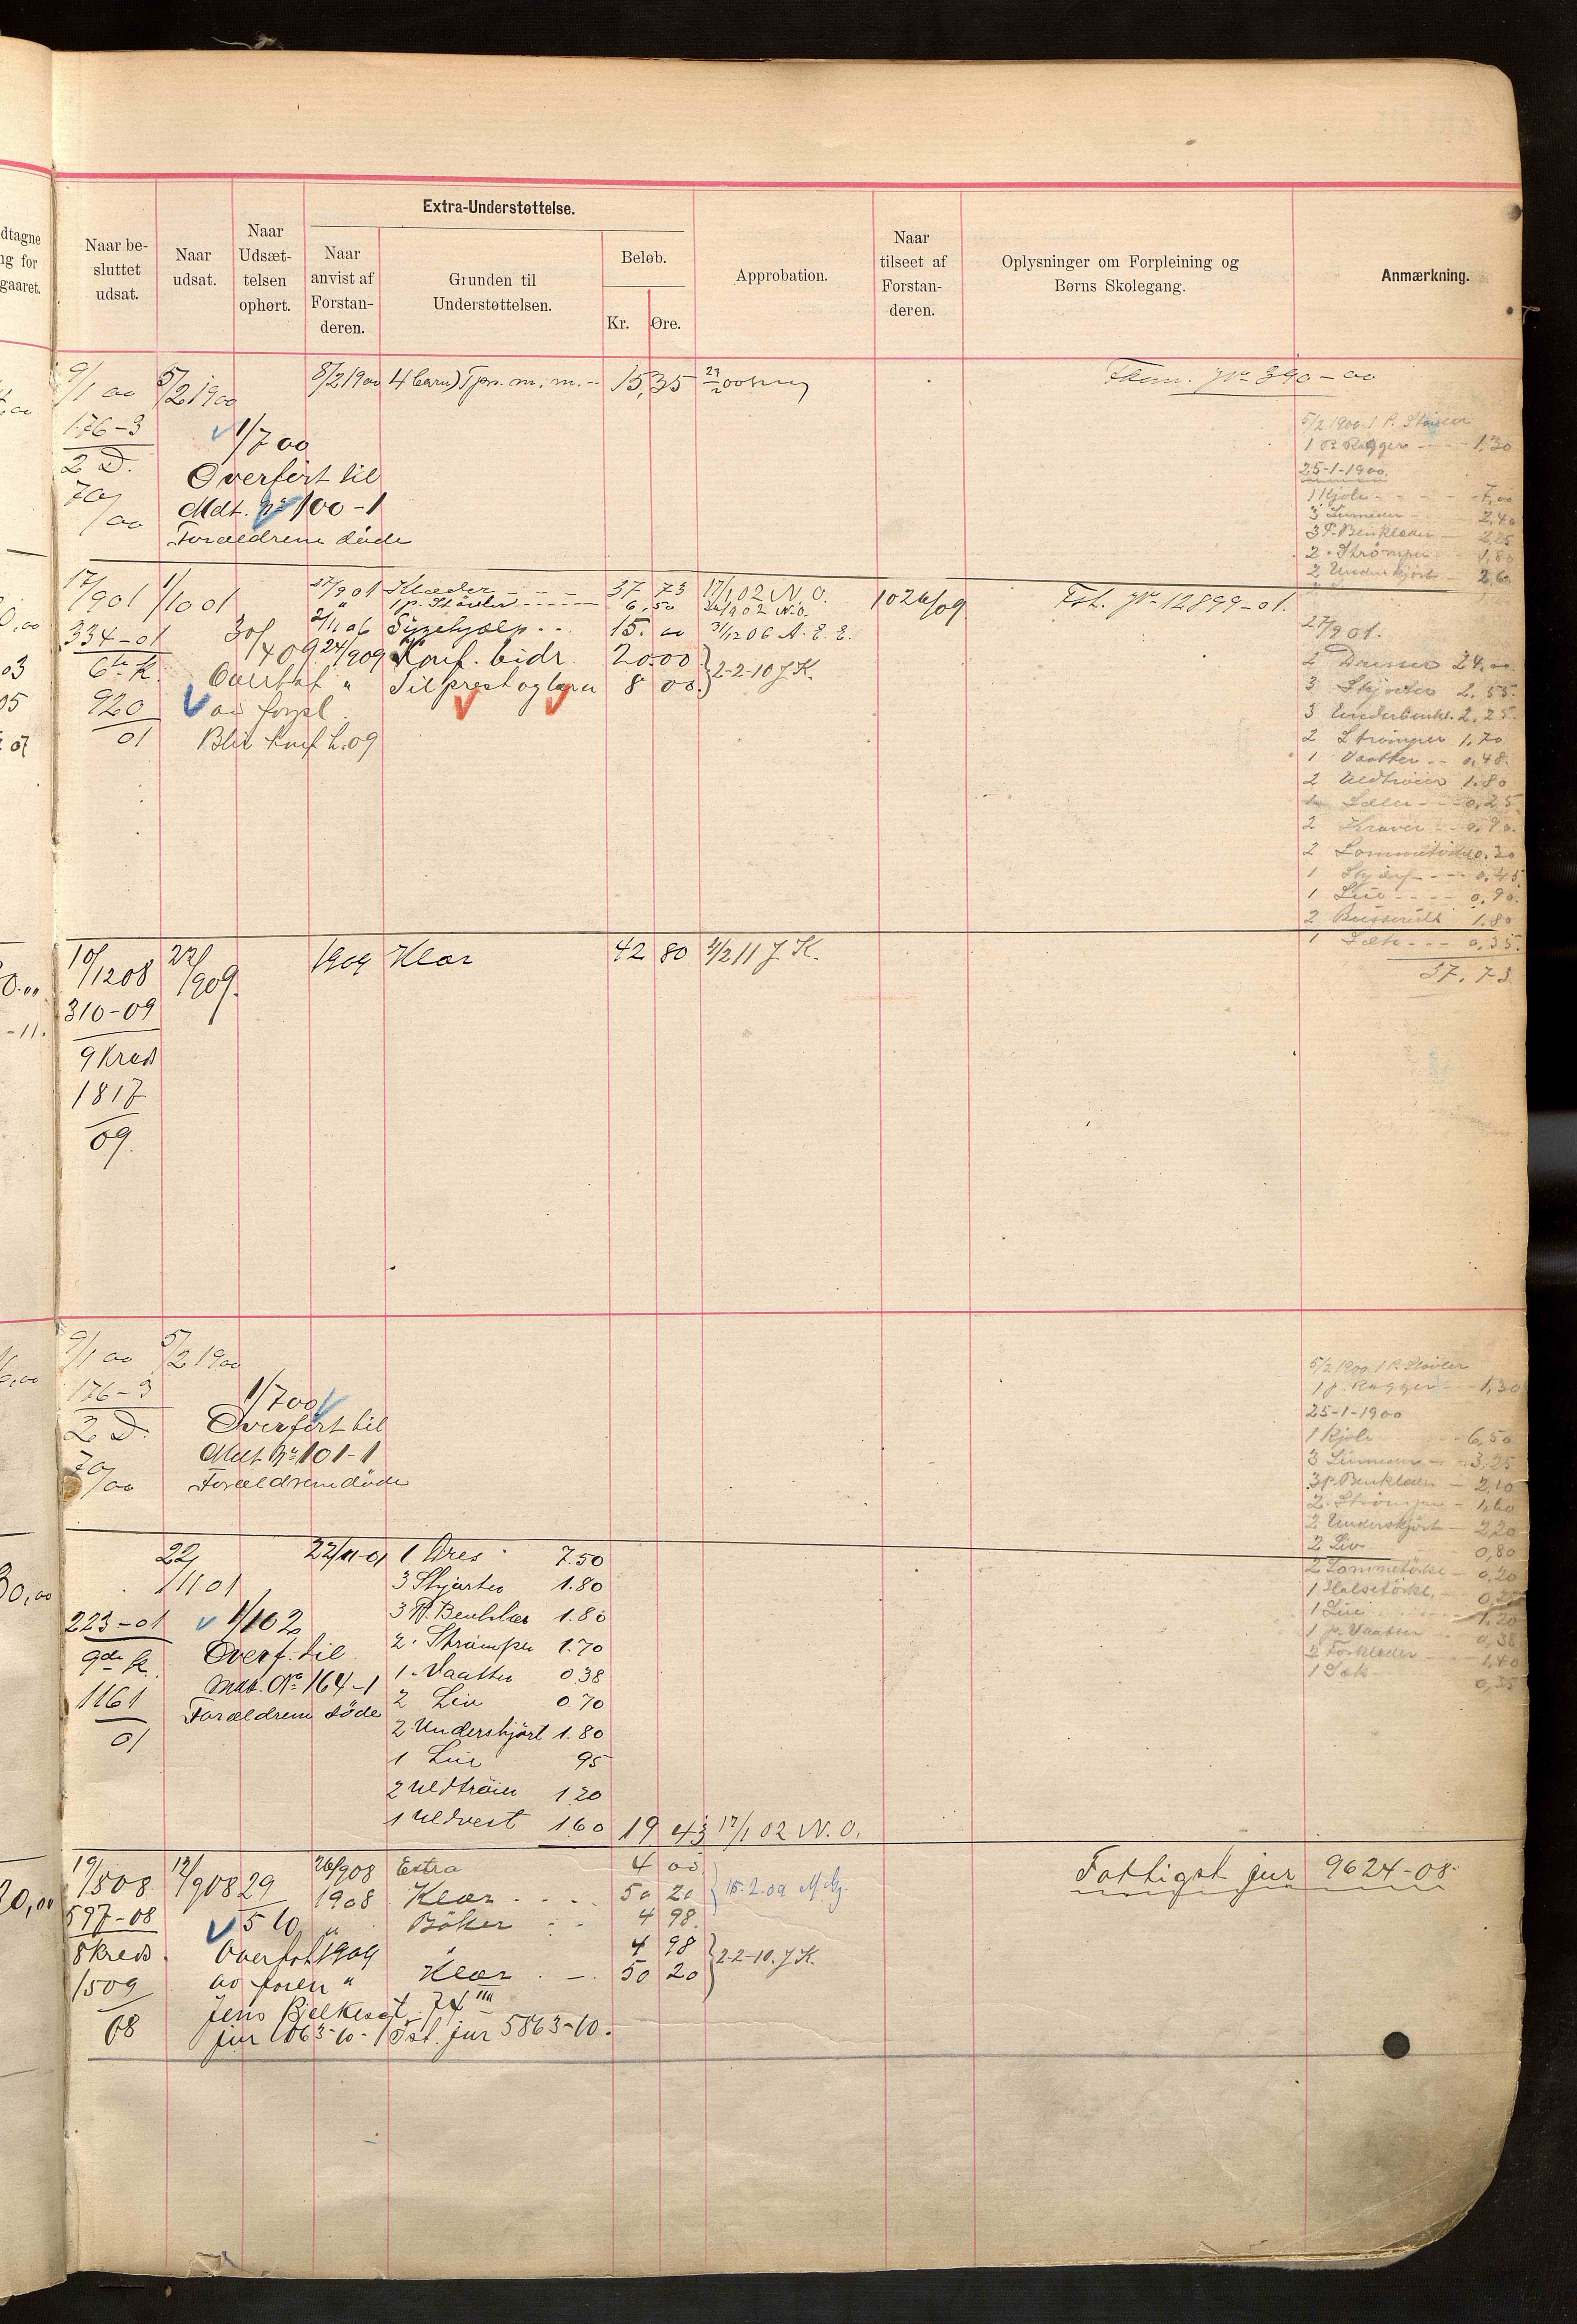 dtagne
ng for
gaaret.
Naar be-
sluttet
udsat.
Naar
udsat.
Naar
Udsæt-
telsen
ophørt.
Extra-Understøttelse.
Naar
anvist af
Forstan-
deren.
Grunden til
Understøttelsen.
Beløb.
Kr. Øre.
Approbation.
Naar
tilseet af
Forstan-
deren.
Oplysninger om Forpleining og
Børns Skolegang.
Anmærkning.
9/1 00 5/2 1900 8/2 1900 4 barn) m. m. 15,35
390-00
176-3
2 D.
70/00
1/7 00
Overført til
Mdt. No 100-1
Forældrene døde
5/2 1900. 1 P. Støvler
1 P. Ragger 1,30
25-1-1900.
1 Kjole 7,00
3 Linneder 2,40
3 P. Benklæder 2,25
2 " Strømper 1,80
2 Underskjørt 2,60
17/9 01 1/10 01 27/9 01 Klæder 37 73 17/1 02 N.O.
1 p. Støvler 6,50 N.O.
2/11 06 Sygehjælp 15.00 31/12 06 A. E. E.
10 26/09
Fst. Jr. 12899-01.
334-01
6te K.
920
01
30/4 09 24/9 09 Konf. bidr. 20.00
Overtat " Til prest og lærer 8 00 } 2-2-10 J K.
av forpl.
Blir konf h. 09
27/9 01.
2 Dresser 24.00
3 Skjorter 2.55.
3 Underbenkl. 2.25.
2 Strømper 1.70
1 Vaatter 0,48.
2 Uldtrøier 1.80
1 Seler 0,25
2 Kraver 0.90.
2 Lommetørkl. 0.30
1 Skjærf 0,45
1 Lue 0,90.
2 1.80
1 Sæk 0,35.
37.73
10/12 08 22/9 09. 1909 Klær 42 80 4/2 11 J. K.
310-09
9 Kreds
1817
09.
9/1 00 5/2 1900
176-3
2 D.
70/00
1/7 00
Overført til
Mdt No 101-1
Forældrene døde
5/2 1900. 1 P. Støvler
1 p. Ragger 1,30
25-1-1900
1 Kjole 6,50
3 Linneder 3,25
3 p. Benklæder 2,10
2. Strømper 1,60
2 Underskjørt 2,20
2 Liv 0,80
2 Lommetörkl 0,20
1 Halsetörkl.
1 Lue 1,20
1 p. Vaatter 0,38
2 Forklæder 1,40
1 Sæk 0,35
22/11 01 22/11-01 1 Kres 7.50
3 Skjorter 1.80
3 P. Benklær 1.80
2 " Strømper 1.70
1 " Vaatter 0.38
2 Liv 0.70
2 Underskjørt 1.80
1 Lue 95
2 Uldtrøier 1 20
1 Uldvest 1.60 19 43 17/1 02 N. O.
223-01
9de K.
1161
01
1/1 02
Overf. til
Mdt. No 164-1
Forældrene døde
19/5 08 12/9 08 26/9 08 Extra 4 00
1908 Klær 50 20 } 15.2.09
" Böker 4 98.
1909 " 4 98
" Klær 50 20 } 2-2-10. J K.
597-08
8 kreds
1509
08
29/5 10
Overfört
av foren
Jens Bjelkesgt. 74 III
jur 1063-10- Fst. jur 5863-10.
Fattigst jur 9624-08